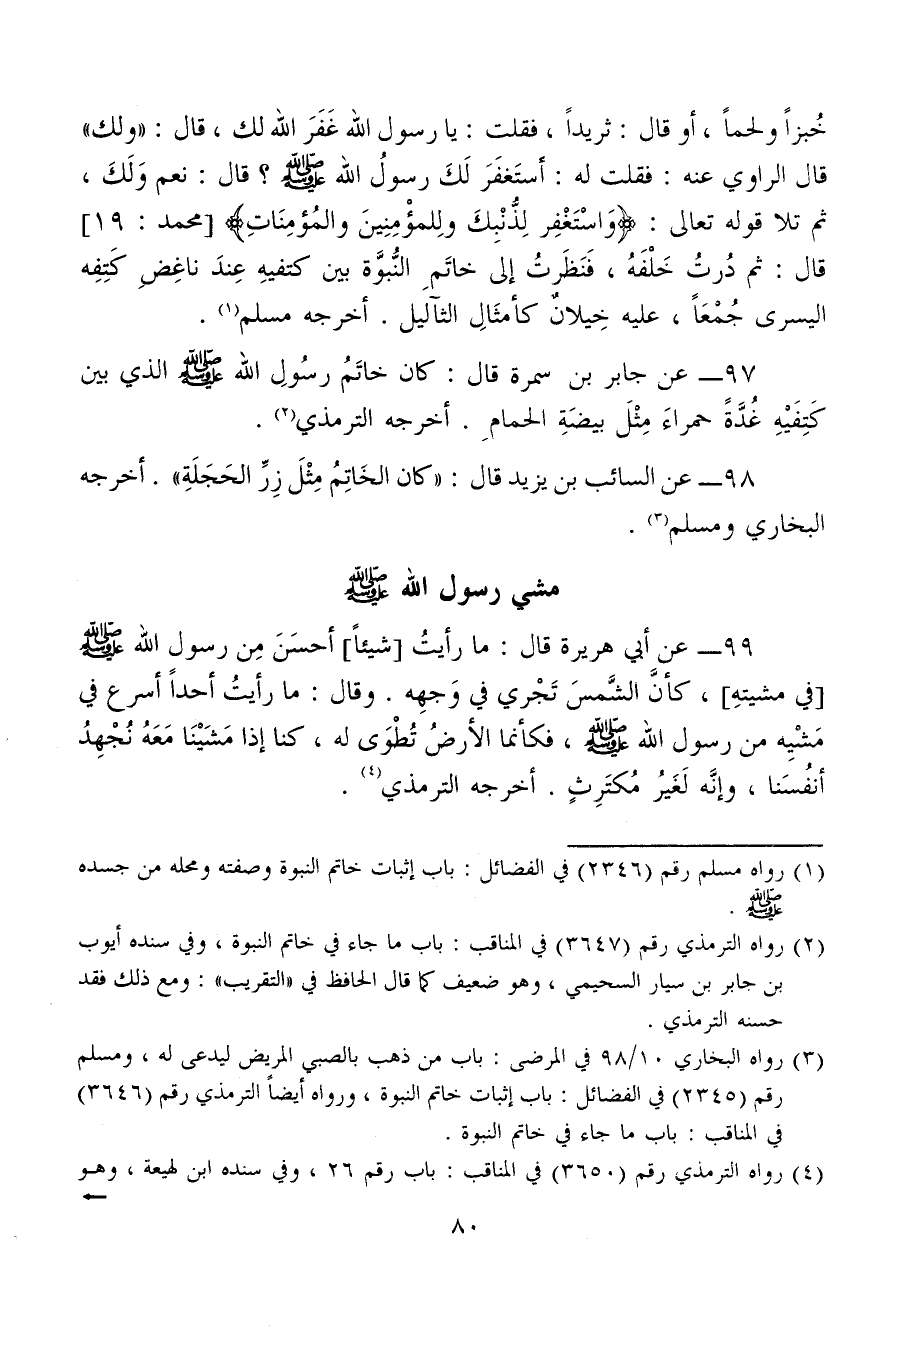 خُبزاً ولحماً ، أو قال : ثريداً ، فقلت : يا رسول الله غَفَرَ الله لك ، قال : «ولك»
قال الراوي عنه : فقلت له : أستَغفَرَ لَكَ رسولُ الله ﷺ ؟ قال : نعم وَلَكَ ،
ثم تلا قوله تعالى : ﴿وَاسْتَغْفِر لِذُنْبِكَ ولِلمؤمِنِينَ والمُؤمِنَاتِ﴾ [محمد : ١٩]
قال : ثم دُرتُ خَلْفَهُ ، فَنَظَرتُ إلى خاتَمِ النُّبوَّة بين كتفيهِ عِندَ ناغِضِ كَتِفِه
اليسرى جُمْعَاً ، عليه خِيلانٌ كأمثَالِ الثآليل . أخرجه مسلم(١) .
٩٧ــ عن جابر بن سمرة قال : كان خاتَمُ رسُولِ الله ﷺ الذي بين
كَتِفَيْهِ غُدَّةً حمراءَ مِثْلَ بيضَةِ الحمامِ . أخرجه الترمذي(٢) .
٩٨ــ عن السائب بن يزيد قال : «كان الخَاتِمُ مِثْلَ زِرِّ الحَجَلَةِ» . أخرجه
البخاري ومسلم(٣) .
مشي رسول الله ﷺ
٩٩ــ عن أبي هريرة قال : ما رأيتُ [شيئاً] أحسَنَ مِن رسول الله ﷺ
[في مشيتهِ] ، كأنَّ الشَّمسَ تَجْري في وَجهِه . وقال : ما رأيتُ أحداً أسرع في
مَشْيِه من رسول الله ﷺ ، فكأنما الأرضُ تُطْوَى له ، كنا إذا مَشَيْنَا مَعَهُ نُجْهِدُ
أنفُسَنا ، وإنَّه لَغَيرُ مُكتَرِثٍ . أخرجه الترمذي(٤) .
(١) رواه مسلم رقم (٢٣٤٦) في الفضائل : باب إثبات خاتم النبوة وصفته ومحله من جسده
ﷺ .
(٢) رواه الترمذي رقم (٣٦٤٧) في المناقب : باب ما جاء في خاتم النبوة ، وفي سنده أيوب
بن جابر بن سيار السحيمي ، وهو ضعيف كما قال الحافظ في «التقريب» : ومع ذلك فقد
حسنه الترمذي .
(٣) رواه البخاري ٩٨/١٠ في المرضى : باب من ذهب بالصبي المريض ليدعى له ، ومسلم
رقم (٢٣٤٥) في الفضائل : باب إثبات خاتم النبوة ، ورواه أيضاً الترمذي رقم (٣٦٤٦)
في المناقب : باب ما جاء في خاتم النبوة .
(٤) رواه الترمذي رقم (٣٦٥٠) في المناقب : باب رقم ٢٦ ، وفي سنده ابن لهيعة ، وهو
←
٨٠